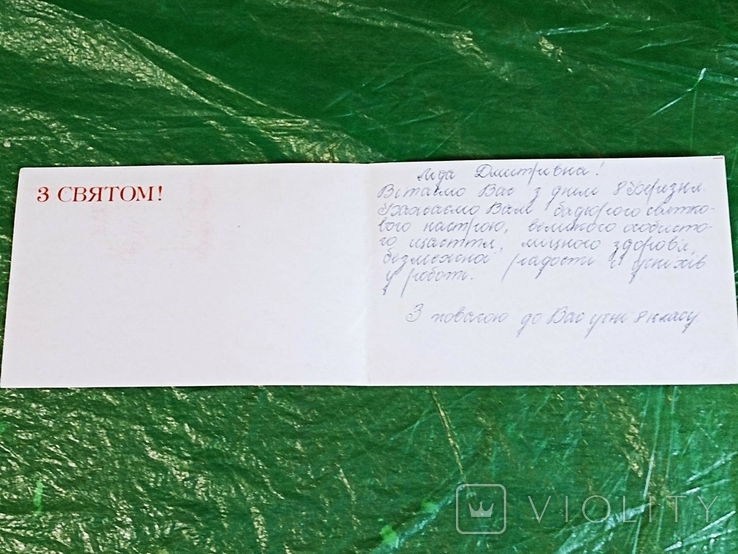 З СВЯТОМ!
Ліда Дмитрівна!
Вітаємо Вас з днем 8 Березня.
Бажаємо Вам бадьорого святко-
вого настрою, великого особисто-
го щастя, міцного здоровя,
безмежної радості й успіхів
у роботі.
З повагою до Вас учні 8 класу
VIOLITY